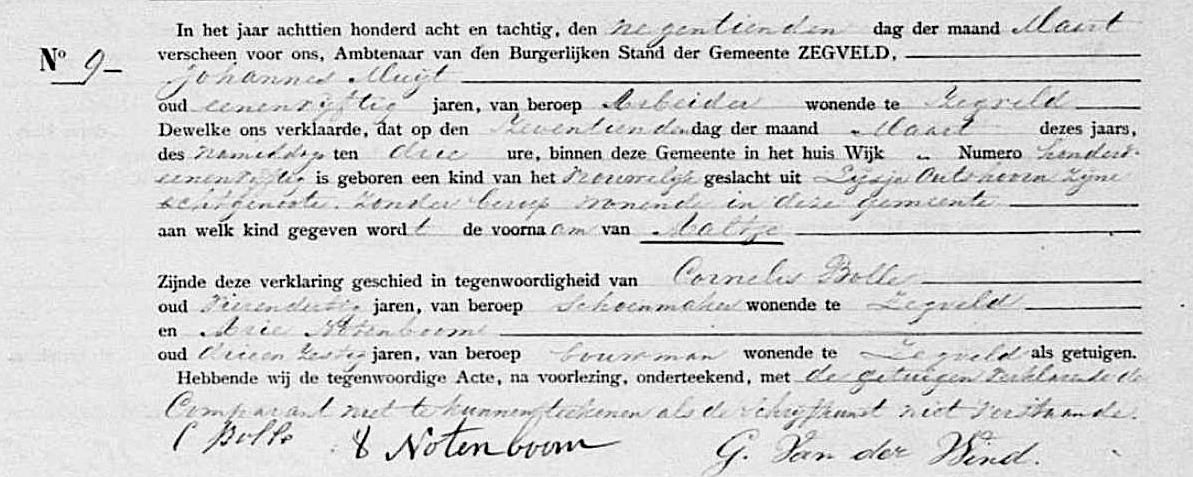 In het jaar achttien honderd acht en tachtig, den negentienden dag der maand Maart
No 9 verscheen voor ons, Ambtenaar van den Burgerlijken Stand der Gemeente ZEGVELD,
Johannes Muijt
oud eenenvijftig jaren, van beroep Arbeider wonende te Zegveld
Dewelke ons verklaarde, dat op den Zeventienden dag der maand Maart dezes jaars,
des namiddags ten drie ure, binnen deze Gemeente in het huis Wijk „ Numero honderd
eenenvijftig is geboren een kind van het Vrouwelijk geslacht uit Zijsje Outshoorn Zijne
echtgenoote, zonder beroep wonende in deze gemeente
aan welk kind gegeven wordt de voornaam van Aaltje
Zijnde deze verklaring geschied in tegenwoordigheid van Cornelis Bolle
oud Vierendertig jaren, van beroep Schoenmaker wonende te Zegveld
en Arie Notenboom
oud drieenzestig jaren, van beroep bouwman wonende te Zegveld als getuigen.
Hebbende wij de tegenwoordige Acte, na voorlezing, onderteekend, met de getuigen verklarende de
Comparant niet te kunnen teekenen als de schrijfkunst niet verstaande.
C Bolle Notenboom G. Van der Wind.